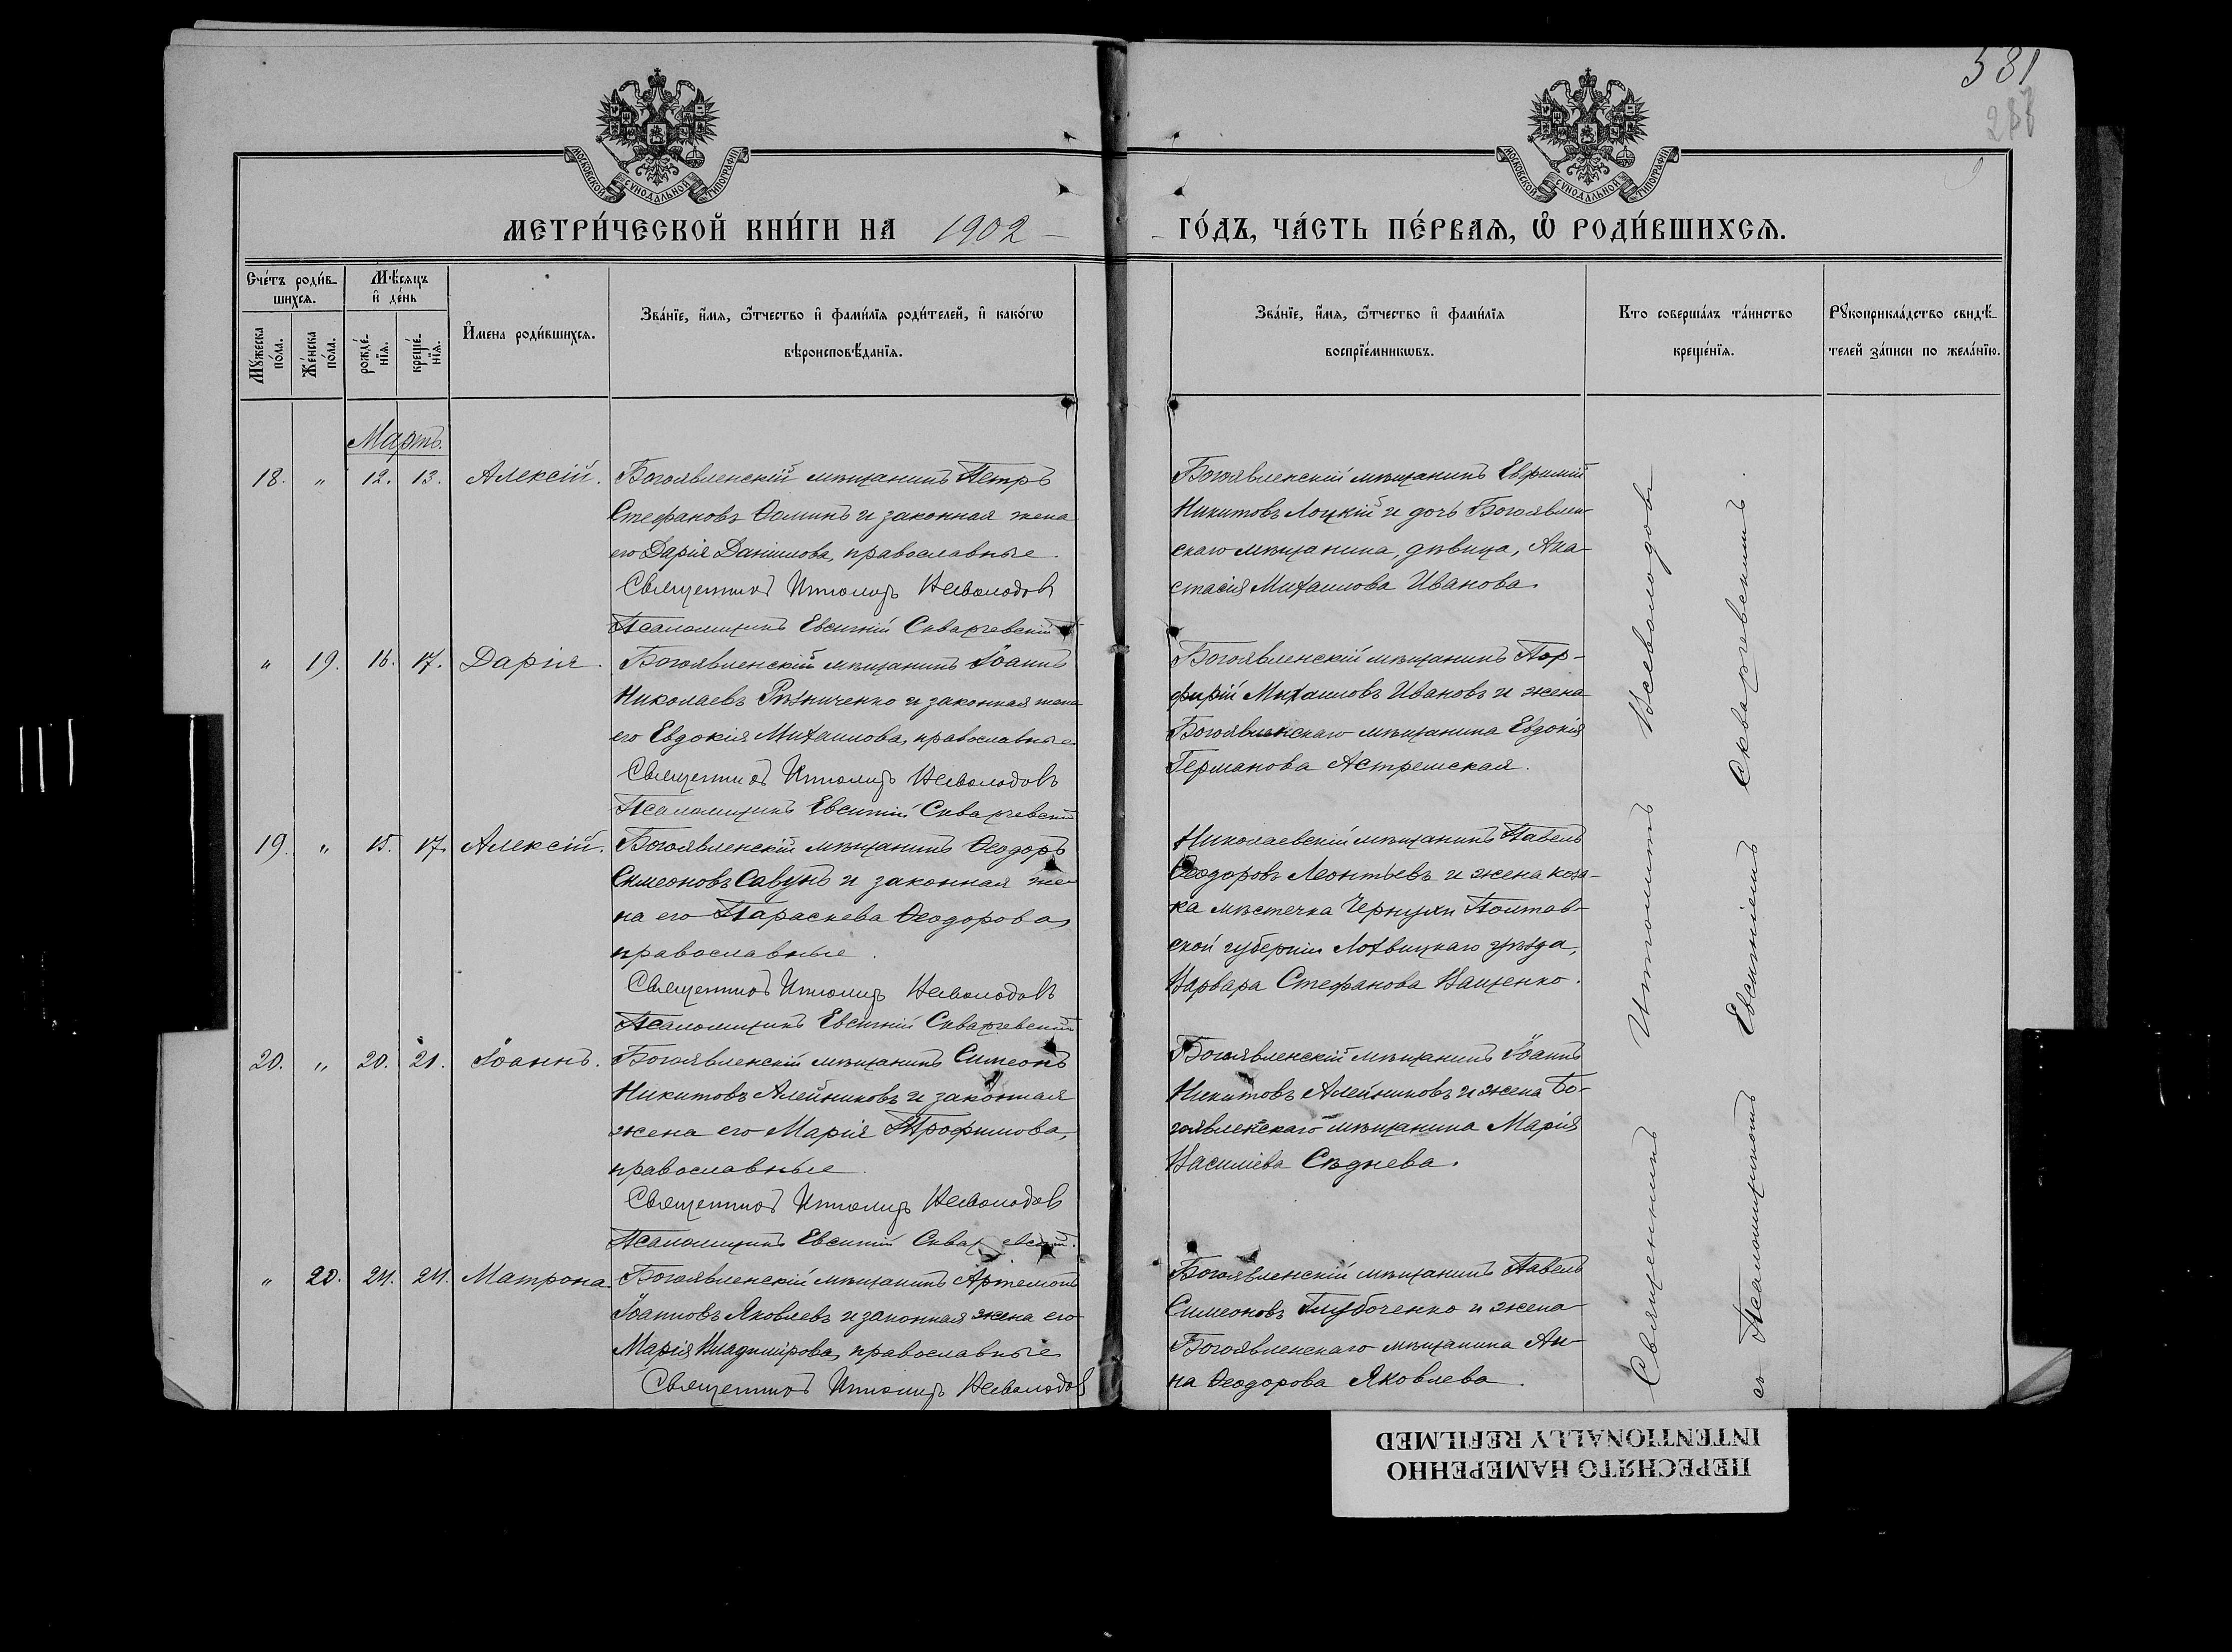 581
МОСКОВСКОЙ СѴНОДАЛЬНОЙ ТИПОГРАФІИ
МОСКОВСКОЙ СѴНОДАЛЬНОЙ ТИПОГРАФІИ
МЕТРИ́ЧЕСКОЙ КНИ́ГИ НА 1902
ГО́ДЪ, ЧА́СТЬ ПЕ́РВАѦ, Ѿ РОДИ́ВШИХСѦ.
Сче́тъ роди́в-
шихсѧ.
Мꙋ́жеска по́ла.
Же́нска по́ла.
Мѣ́сѧцъ
и҆ де́нь
рожде́-
нїѧ.
креще́-
нїѧ.
И҆мена роди́вшихсѧ.
Зва́нїе, и҆́мѧ, ѻ҆́тчество и҆ фами́лїѧ роди́телей, и҆ како́гѡ
вѣроисповѣ́данїѧ.
Зва́нїе, и҆́мѧ, ѻ҆́тчество и҆ фами́лїѧ
воспрїе́мникѡвъ.
Кто соверша́лъ та́инство
креще́нїѧ.
Рꙋкоприкла́дство свидѣ́-
телей за́писи по жела́нїю.
Мартъ.
18. " 12. 13. Алексій. Богоявленскій мѣщанинъ Петръ
Стефановъ Ѳоминъ и законная жена
его Дарія Даніилова, православные.
Священникъ Ипполитъ Всеволодовъ
Псаломщикъ Евсигній Скваржевскій
Богоявленскій мѣщанинъ Евфимій
Никитовъ Лоцкій и дочь Богоявлен-
скаго мѣщанина, дѣвица, Ана-
стасія Михаилова Иванова.
" 19. 16. 17. Дарія. Богоявленскій мѣщанинъ Іоаннъ
Николаевъ Рѣзниченко и законная жена
его Евдокія Михаилова, православные
Священникъ Ипполитъ Всеволодовъ
Псаломщикъ Евсигній Скваржевскій
Богоявленскій мѣщанинъ Пор-
фирій Михаиловъ Ивановъ и жена
Богоявленскаго мѣщанина Евдокія
Германова Астремская.
19. " 15. 17. Алексій. Богоявленскій мѣщанинъ Ѳеодоръ
Симеоновъ Савунъ и законная же-
на его Параскева Ѳеодорова,
православные.
Священникъ Ипполитъ Всеволодовъ
Псаломщикъ Евсигній Скваржевскій
Николаевскій мѣщанинъ Павелъ
Ѳеодоровъ Леонтьевъ и жена коза-
ка мѣстечка Чернухи Полтав-
ской губерніи Лохвицкаго уѣзда,
Варвара Стефанова Ващенко.
20. " 20. 21. Іоаннъ. Богоявленскій мѣщанинъ Симеонъ
Никитовъ Алейниковъ и законная
жена его Марія Трофимова,
православные.
Священникъ Ипполитъ Всеволодовъ
Псаломщикъ Евсигній
Богоявленскій мѣщанинъ Іоаннъ
Никитовъ Алейниковъ и жена Бо-
гоявленскаго мѣщанина Марія
Василіева Сѣднева.
" 20. 24. 24. Матрона. Богоявленскій мѣщанинъ Артемонъ
Іоанновъ Яковлевъ и законная жена его
Марія Владимірова, православные
Священникъ Ипполитъ Всеволодовъ
Богоявленскій мѣщанинъ Павелъ
Симеоновъ Глубоченко и жена
Богоявленскаго мѣщанина Ан-
на Ѳеодорова Яковлева.
Священникъ Ипполитъ Всеволодовъ
съ Псаломщикомъ Евсигніемъ Скваржевскимъ.
ПЕРЕСНЯТО НАМЕРЕННО
INTENTIONALLY REFILMED